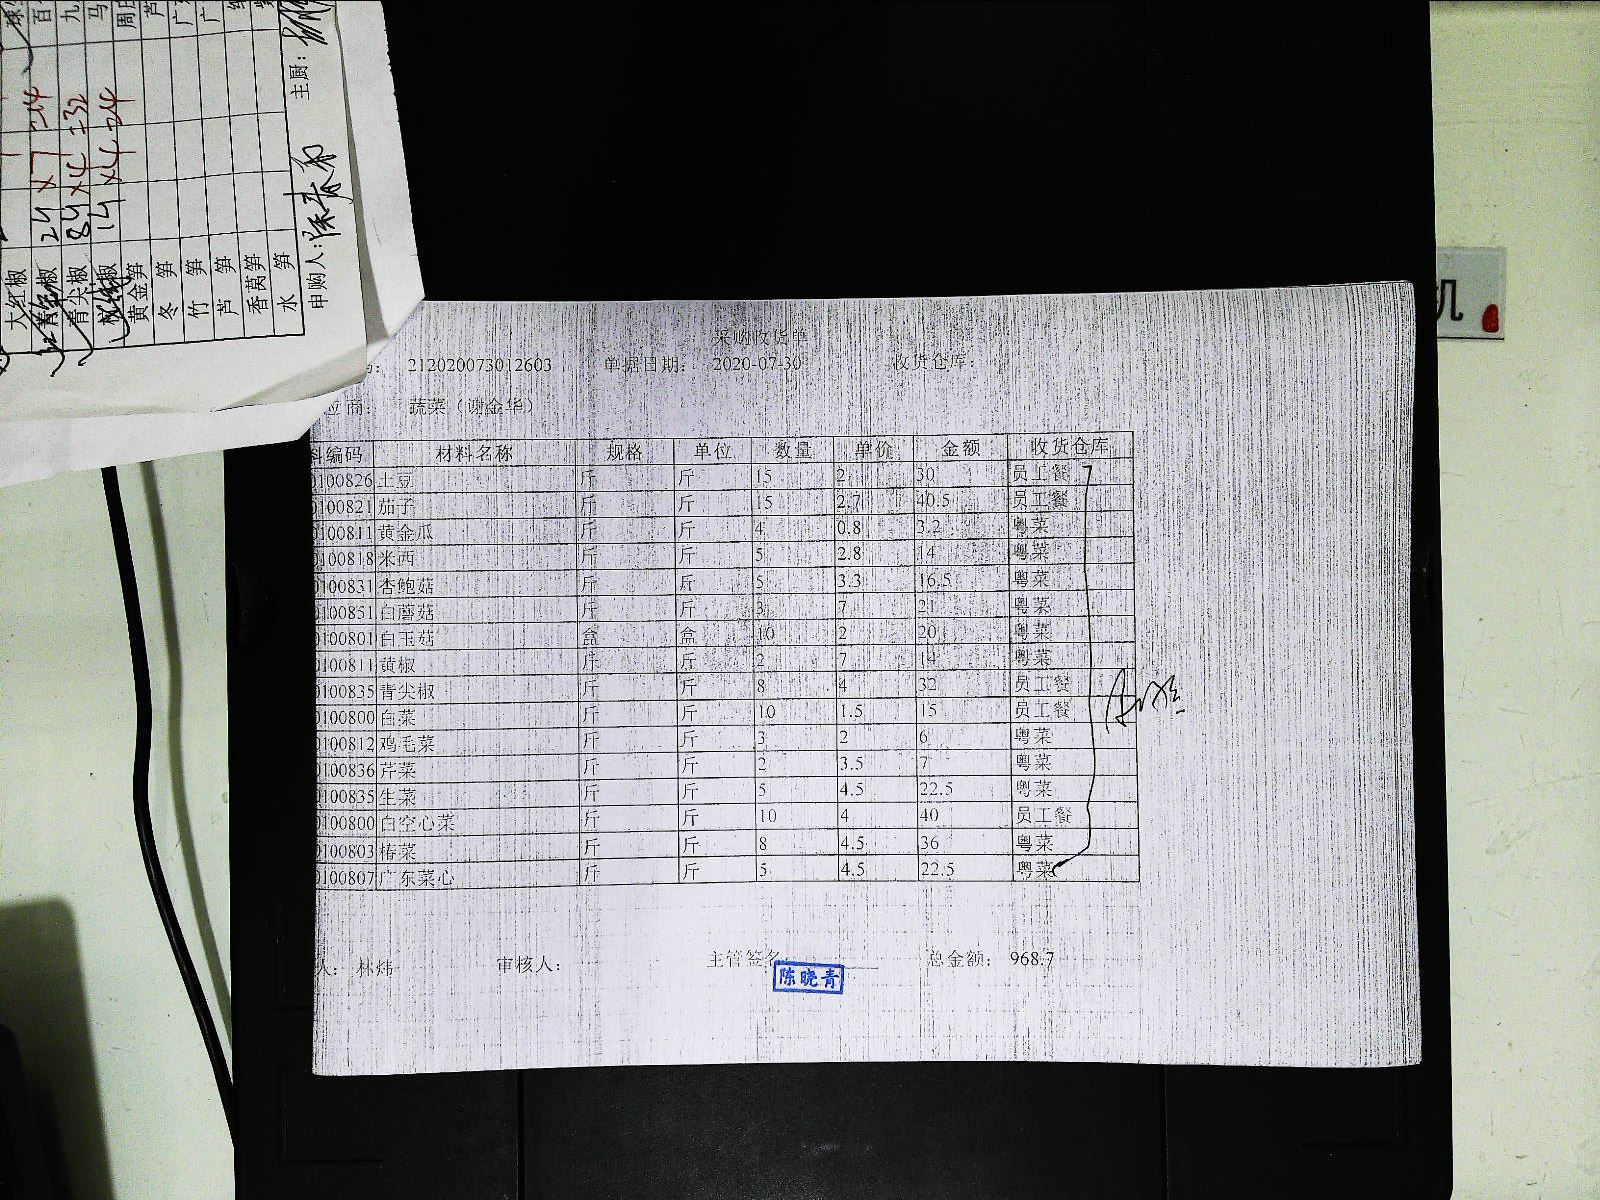 大红椒
青红椒 24 x7 24
青尖椒 84 x4 =32
14 x4 24
黄金笋
冬 笋
竹 笋
芦 笋
香莴笋
水 笋
申购人:
主厨:
机
采购收货单
212020073012603 单据日期: 2020-07-30 收货仓库:
应商: 蔬菜(谢金华)
料编码 材料名称 规格 单位 数量 单价 金额 收货仓库
0100826 土豆 斤 斤 15 2 30 员工餐
0100821 茄子 斤 斤 15 2.7 40.5 员工餐
0100811 黄金瓜 斤 斤 4 0.8 3.2 粤菜
0100818 米西 斤 斤 5 2.8 14 粤菜
0100831 杏鲍菇 斤 斤 5 3.3 16.5 粤菜
0100851 白蘑菇 斤 斤 3 7 21 粤菜
0100801 白玉菇 盒 盒 10 2 20 粤菜
0100811 黄椒 斤 斤 2 7 14 粤菜
0100835 青尖椒 斤 斤 8 4 32 员工餐
0100800 白菜 斤 斤 10 1.5 15 员工餐
0100812 鸡毛菜 斤 斤 3 2 6 粤菜
0100836 芹菜 斤 斤 2 3.5 7 粤菜
0100835 生菜 斤 斤 5 4.5 22.5 粤菜
0100800 白空心菜 斤 斤 10 4 40 员工餐
0100803 椿菜 斤 斤 8 4.5 36 粤菜
0100807 广东菜心 斤 斤 5 4.5 22.5 粤菜
人: 林炜 审核人: 主管签名: 总金额: 968.7
陈晓青